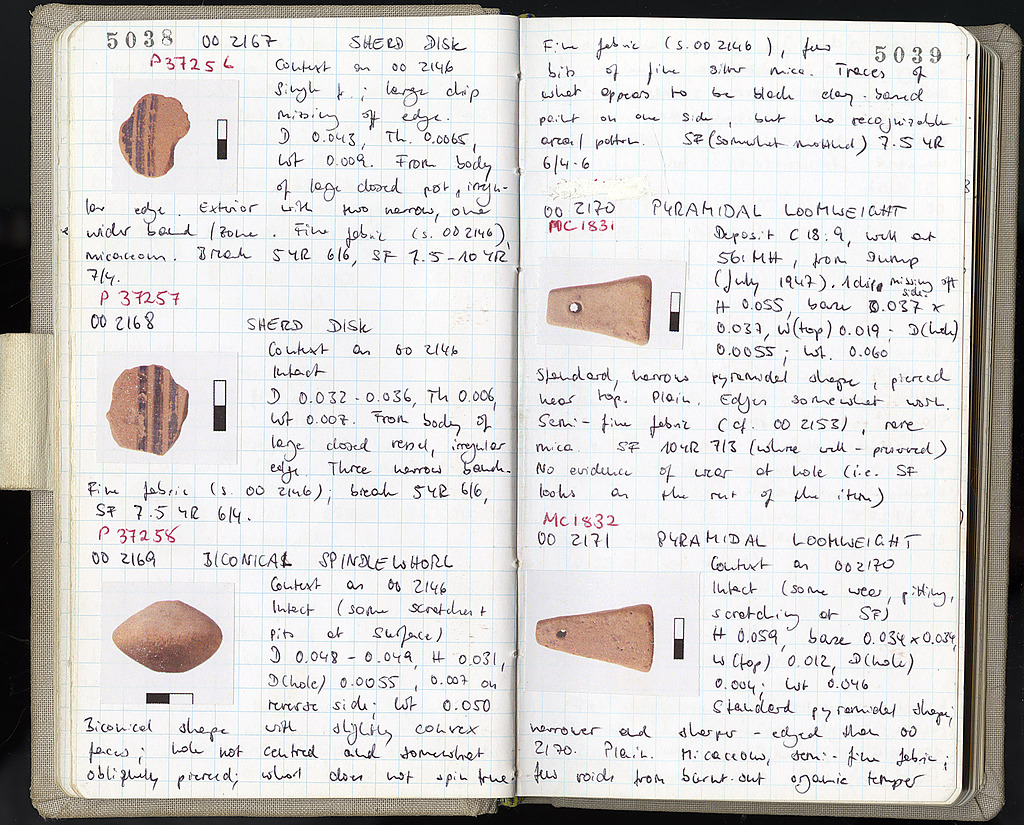 5038 OO 2167 SHERD DISK
P37256
Context as OO 2146
Single f.; large chip
missing off edge.
D 0.043, Th. 0.0065,
Wt 0.009. From body
of large closed pot, irregu-
lar edge. Exterior with two narrow, one
wider band/zone. Fine fabric (s. OO 2146),
micaceous. Break 5YR 6/6, SF 7.5-10YR
7/4.
P 37257
OO 2168 SHERD DISK
Context as OO 2146
Intact
D 0.032-0.036, Th 0.006,
Wt 0.007. From body of
large closed vessel, irregular
edge. Three narrow bands.
Fine fabric (s. OO 2146); break 5YR 6/6,
SF 7.5 YR 6/4.
P 37258
OO 2169 BICONICAL SPINDLEWHORL
Context as OO 2146
Intact (some scratches +
pits at surface)
D 0.048-0.049, H 0.031,
D(hole) 0.0055, 0.007 on
reverse side; Wt 0.050
Biconical shape with slightly convex
faces; hole not centred and somewhat
obliquely pierced; whorl does not spin true
5039
Fine fabric (s. OO 2146), few
bits of fine silver mica. Traces of
what appears to be black clay-based
paint on one side, but no recognizable
area/pattern. SF (somewhat mottled) 7.5 YR
6/4-6
OO 2170 PYRAMIDAL LOOMWEIGHT
MC1831
Deposit C 18:9, well at
56/MH, from Dump
(July 1947). 1 chip missing off
side.
H 0.055, base 0.037 x
0.037, W(top) 0.019; D(hole)
0.0055; Wt. 0.060
Standard, narrow pyramidal shape, pierced
near top. Plain. Edges somewhat worn.
Semi-fine fabric (cf. OO 2153), rare
mica. SF 10YR 7/3 (where well-preserved)
No evidence of wear at hole (i.e. SF
looks as the rest of the item)
MC1832
OO 2171 PYRAMIDAL LOOMWEIGHT
Context as OO2170
Intact (some wear, pitting,
scratching at SF)
H 0.059, base 0.034x0.034,
W(top) 0.012, D(hole)
0.004; Wt 0.046
Standard pyramidal shape;
narrower and sharper-edged than OO
2170. Plain. Micaceous, semi-fine fabric;
few voids from burnt-out organic temper